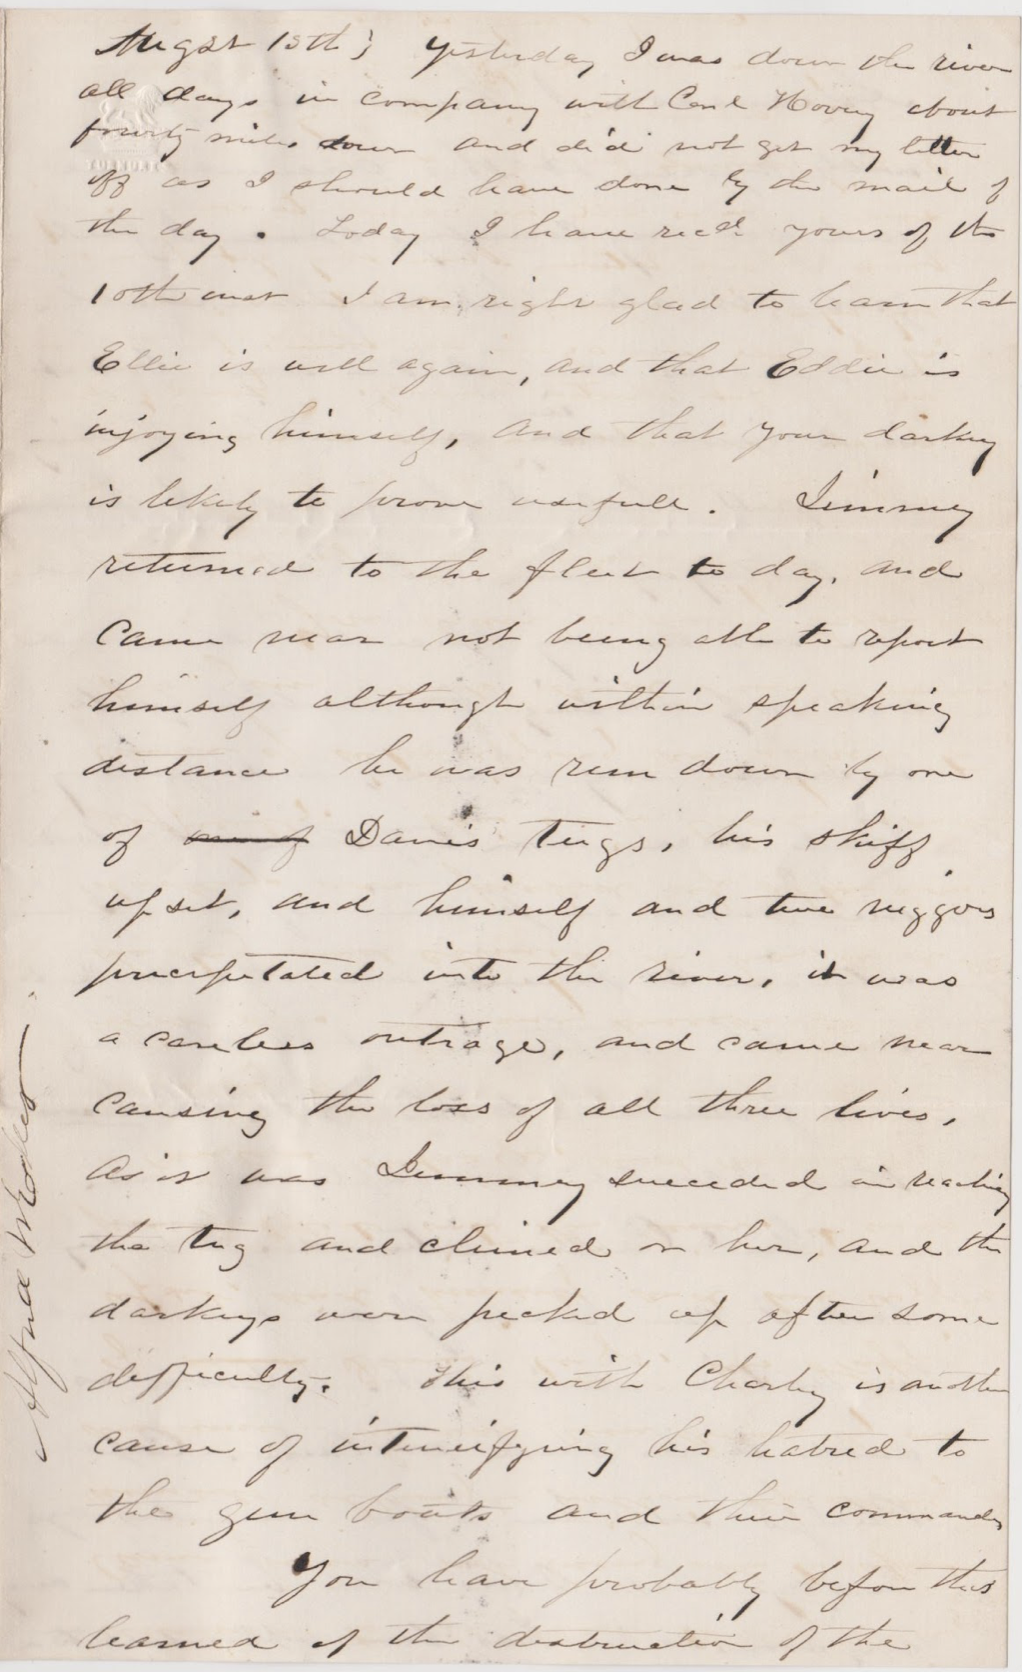 Augst 15th } Yesterday I was down the river
all days in company with Conl Hovey about
fourty miles down and did not get my letter
off as I should have done by the mail of
the day. Today I have recd yours of the
10th inst I am right glad to learn that
Ellie is well again, and that Eddie is
injoying himself, and that your darkey
is likely to prove usefull. Jimmey
returned to the fleet to day, and
came near not being able to report
himself although within speaking
distance he was run down by one
of one of Davis Tugs, his skiff
upset, and himself and two niggors
precipitated into the river, it was
a careless outrage, and came near
causing the loss of all three lives,
As it was Jimmey succeded in reaching
the tug and climed on her, and the
darkeys were picked up after some
difficulty. This with Charley is another
cause of intensifying his hatred to
the gun boats and their commanders
You have probably before this
learned of the destruction of the
Alfred